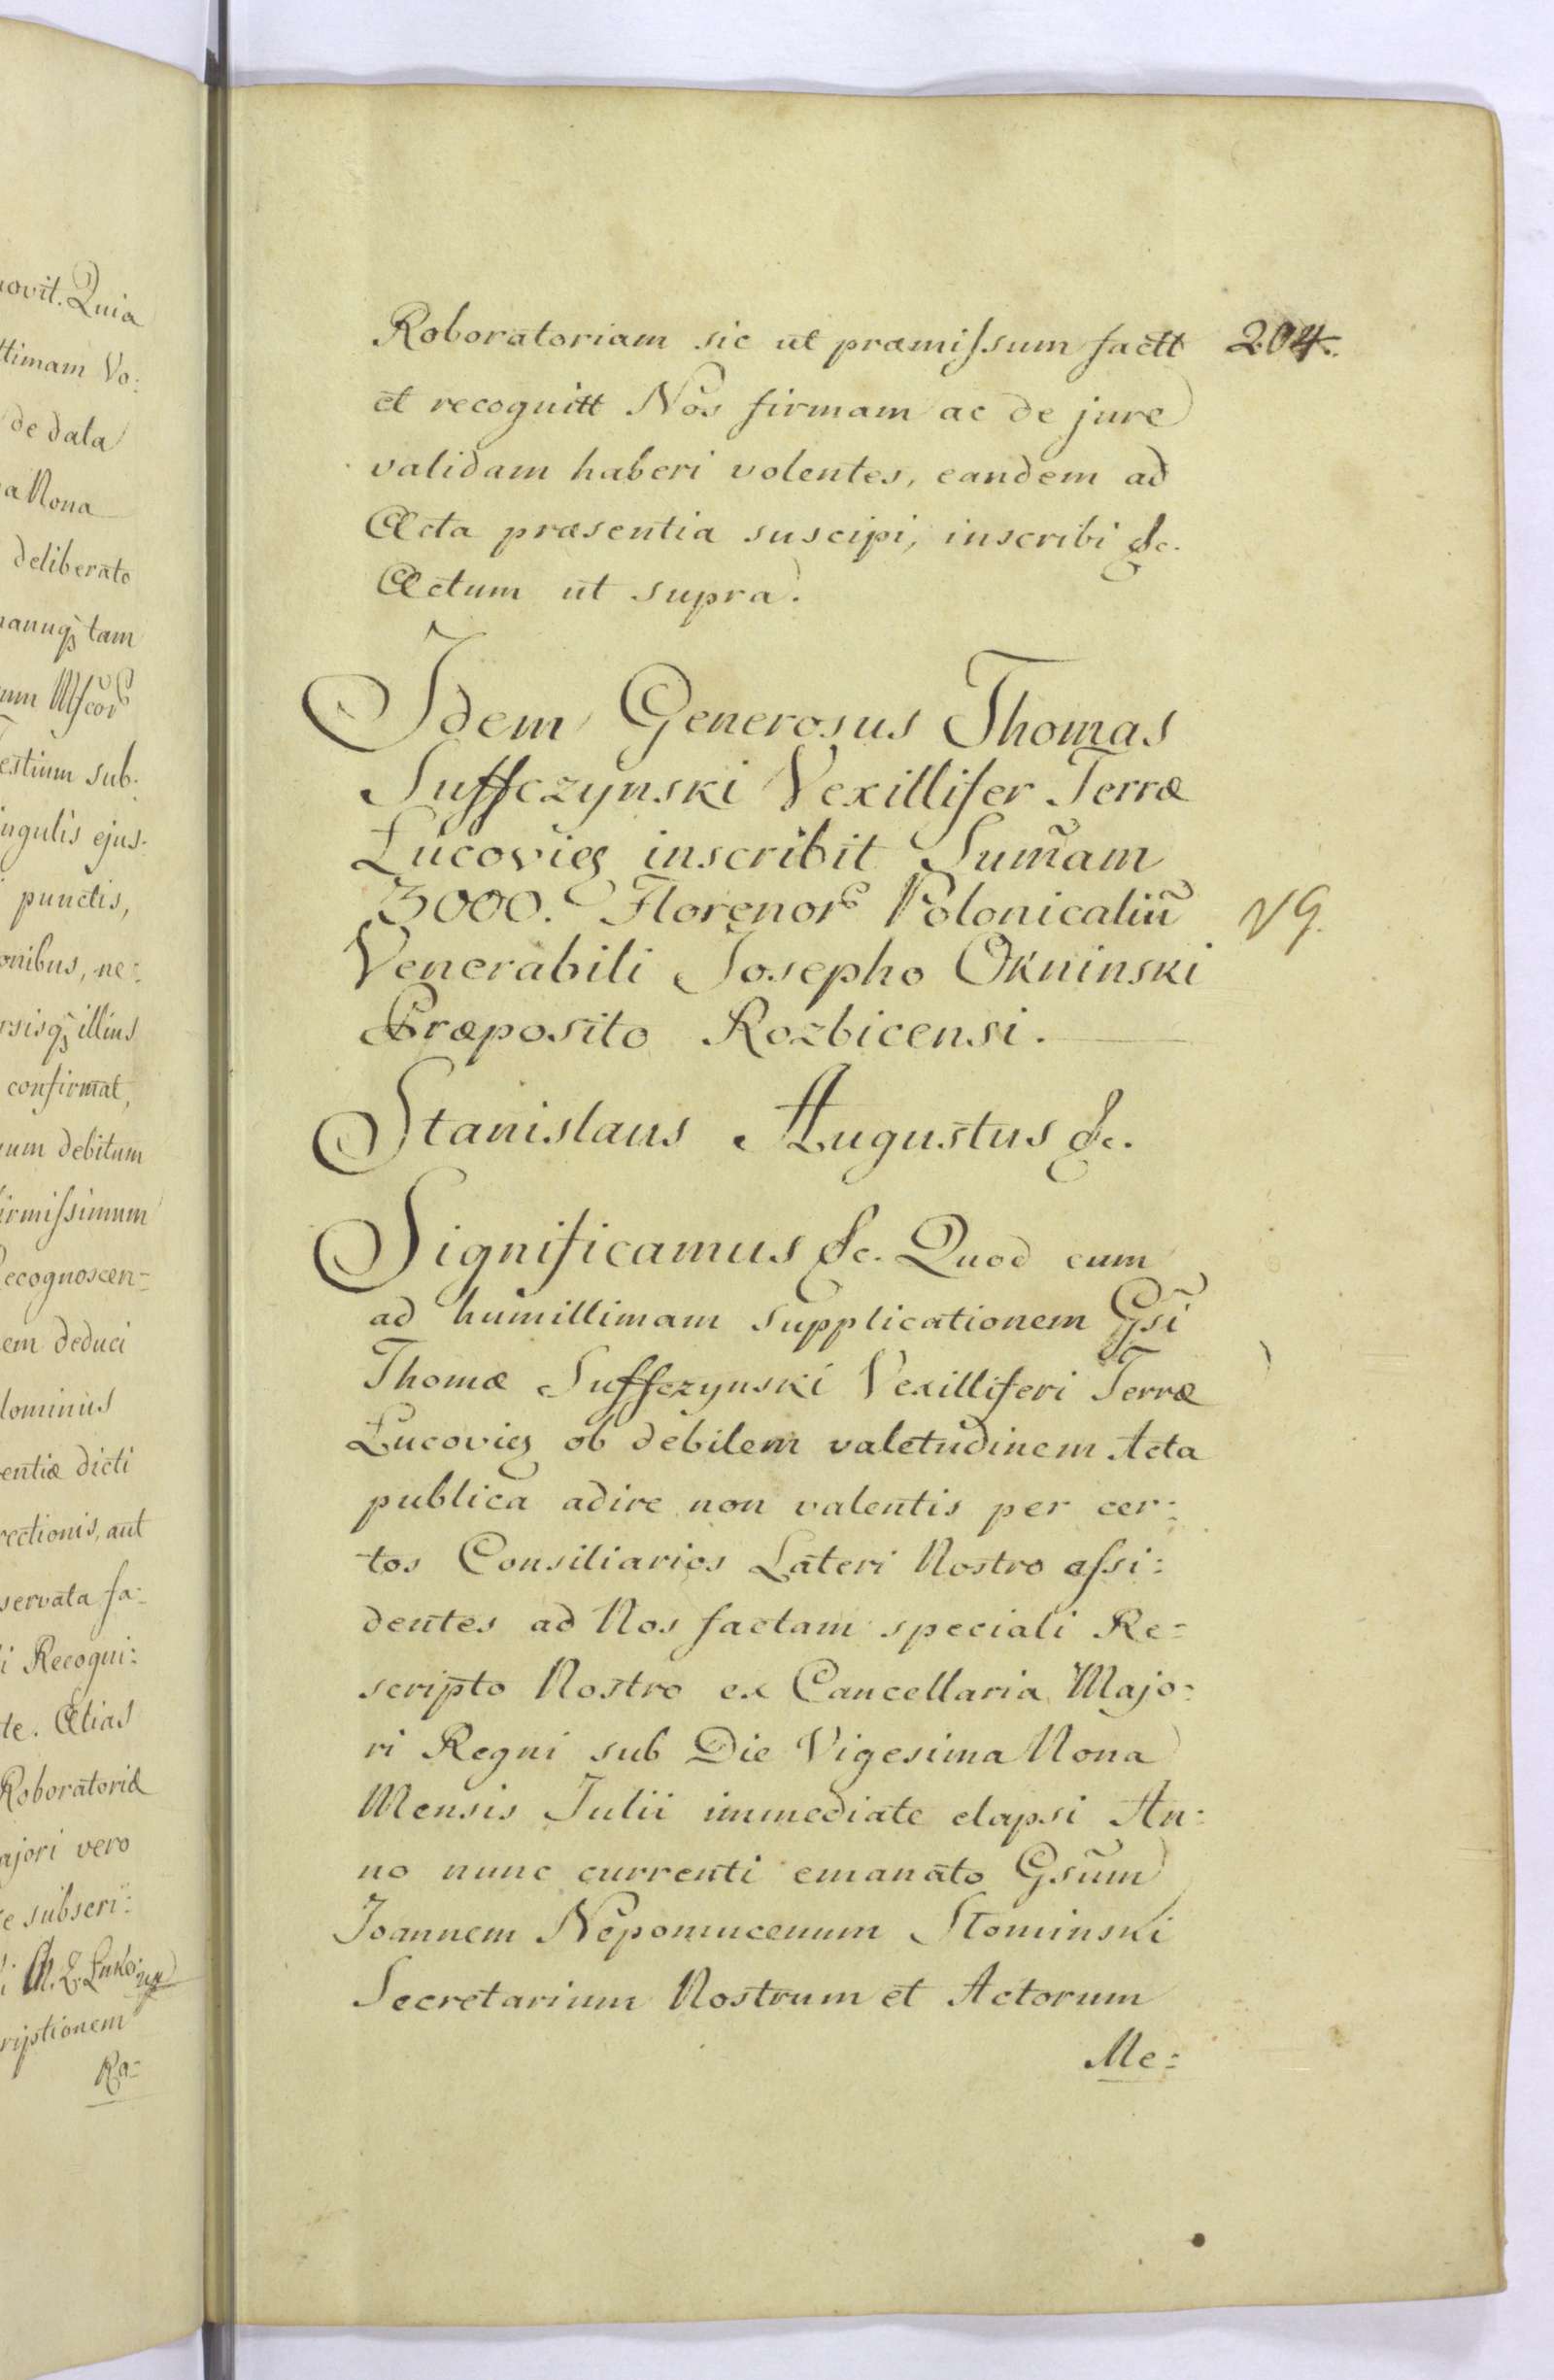 ovit. Quia
ttimam Vo:
de data
a Nona
deliberato
tam
estium sub:
ingulis ejus:
punctis,
onibus, ne:
illius
confirmat,
um debitum
irmissimum
Recognoscen=
em deduci
dominus
entiæ dicti
rectionis, aut
servata fa:
i Recogni:
te. Alias
Roboratoriæ
ajori vero
e subscri:
riptionem
Ro=
Roboratoriam sic ut præmissum factt 204.
et recognitt Nos firmam ac de jure
validam haberi volentes, eandem ad
Acta præsentia suscipi, inscribi &c.
Actum ut supra.
Idem Generosus Thomas
Suffczynski Vexillifer Terræ
Łucovieñ inscribit Sumam̃
3000. Florenor Polonicaliũ
Venerabili Josepho Okninski
Præposito Rozbicensi.
Stanislaus Augustus &c.
Significamus &c. Quod cum
ad humillimam supplicationem Gsi
Thomæ Suffczynski Vexilliferi Terræ
Łucovieñ ob debilem valetudinem Acta
publica adire non valentis per cer:
tos Consiliarios Lateri Nostro assi:
dentes ad Nos factam speciali Re=
scripto Nostro ex Cancellaria Majo:
ri Regni sub Die Vigesima Nona
Mensis Julii immediate elapsi An:
no nunc currenti emanato Gsum
Joannem Nepomucenum Słominski
Secretarium Nostrum et Actorum
Me: